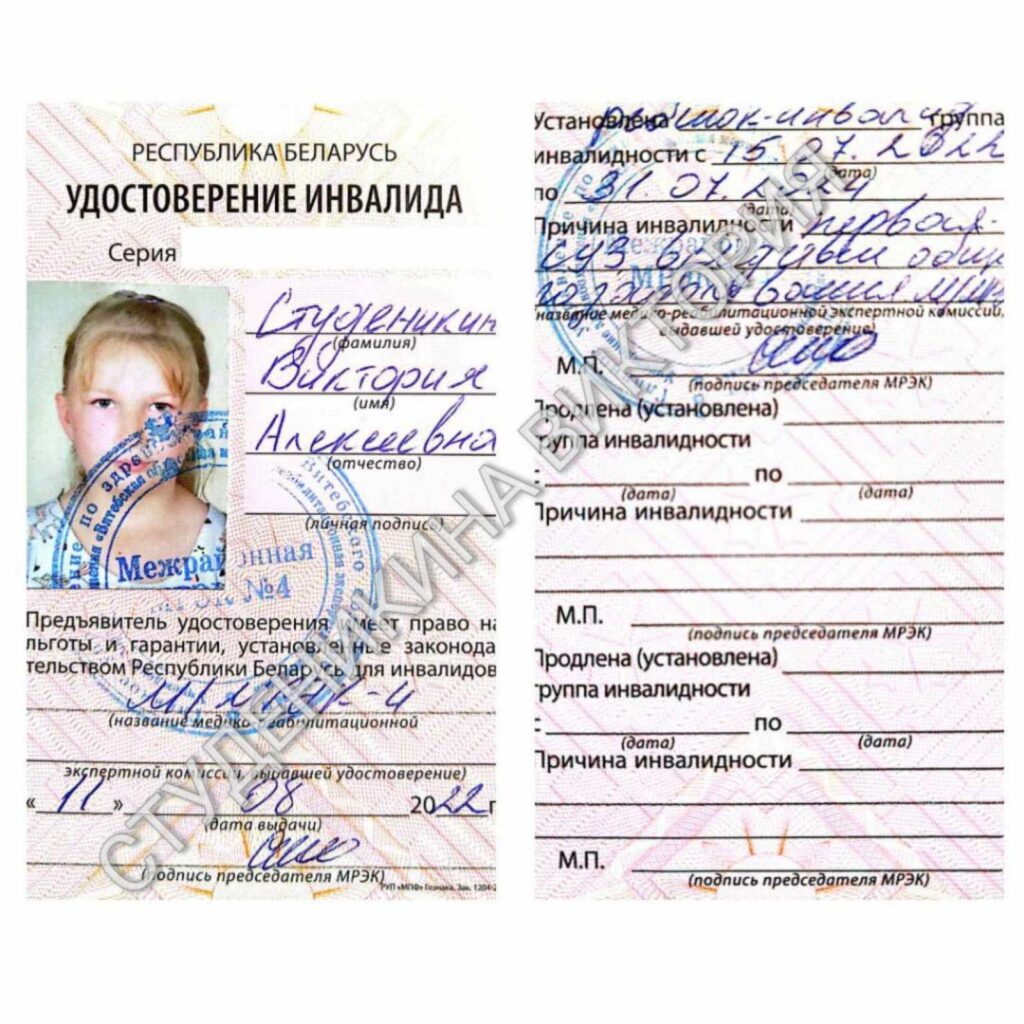 РЕСПУБЛИКА БЕЛАРУСЬ
УДОСТОВЕРЕНИЕ ИНВАЛИДА
Серия
Студеникин
(фамилия)
Виктория
(имя)
Алексеевна
(отчество)
(личная подпись)
Межрайонная
№4
Предъявитель удостоверения имеет право на
льготы и гарантии, установленные законода
тельством Республики Беларусь для инвалидов
(название медико-реабилитационной
экспертной комиссии, выдавшей удостоверение)
« 11 » 08 2022 г
(дата выдачи)
(подпись председателя МРЭК)
РУП «МПФ» Гознака. Зак. 1204-2
Установлена ребёнок-инвалид группа
инвалидности с 15.07.2022
(дата)
по 31.07.2024
(дата)
Причина инвалидности первая
общ
заболевания
название медико-реабилитационной экспертной комиссии,
выдавшей удостоверение)
М.П.
(подпись председателя МРЭК)
Продлена (установлена)
группа инвалидности
с по
(дата) (дата)
Причина инвалидности
М.П.
(подпись председателя МРЭК)
Продлена (установлена)
группа инвалидности
с по
(дата) (дата)
Причина инвалидности
М.П.
(подпись председателя МРЭК)
СТУДЕНИКИНА ВИКТОРИЯ